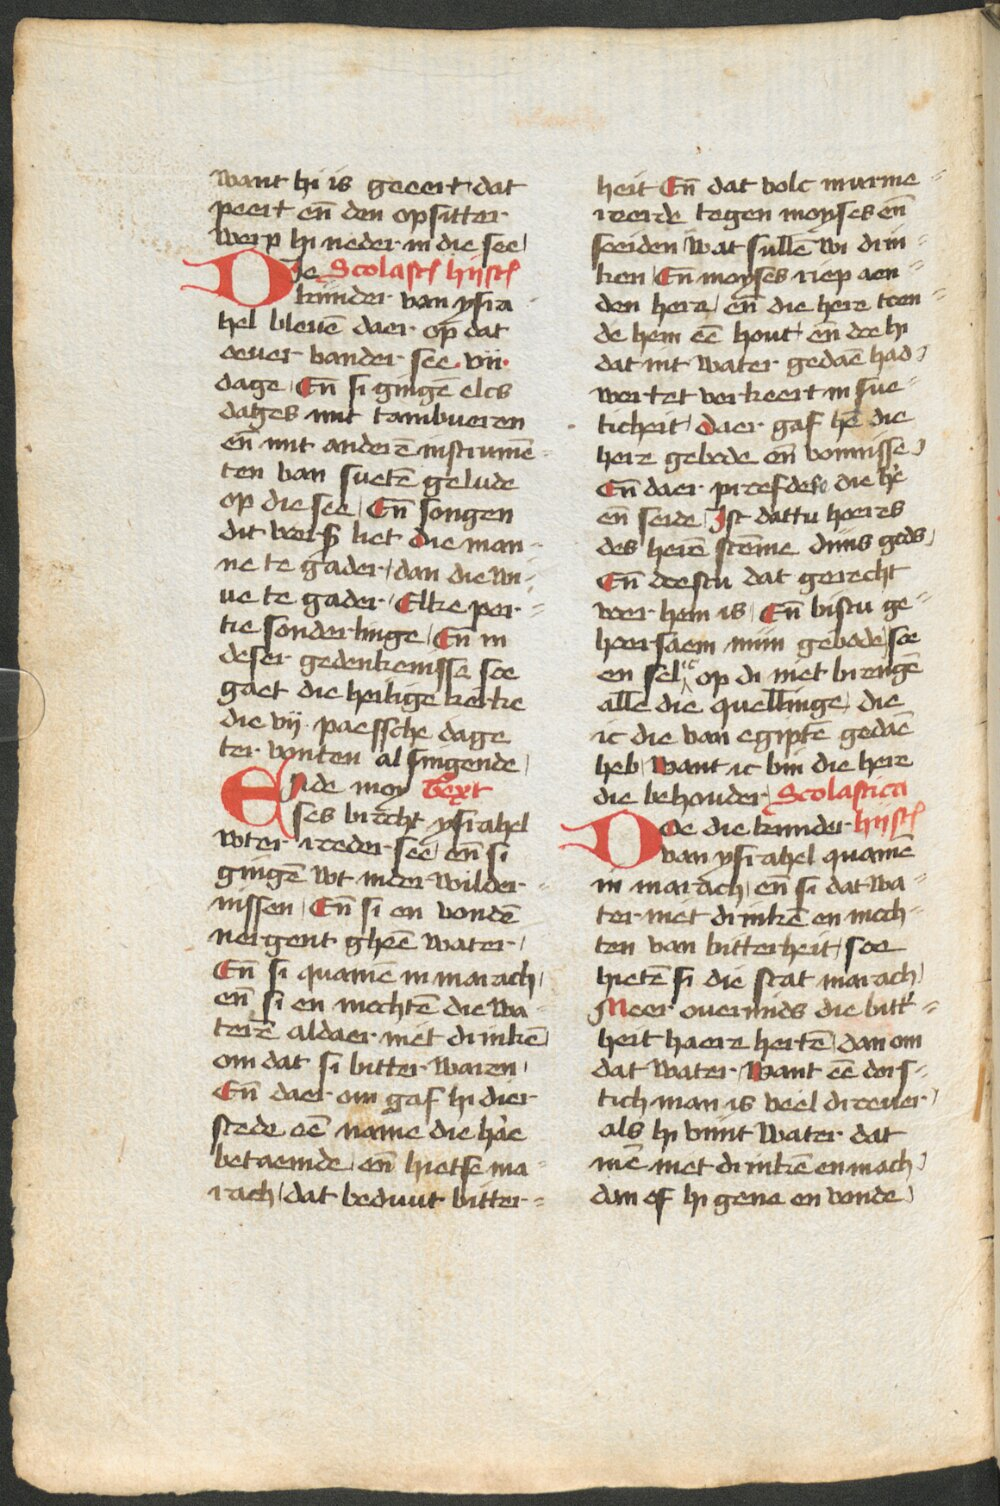 want hi is geeert dat
peert en̄ den opsitter
werp hi neder in die see
Die Scolastꝭ histꝭ
kinder van ysra
hel bleuē daer op dat
oeuer vander see vii
dage En̄ si gingē elcs
dages mit tambueren
en̄ mit anderē instrumē
ten van suetē gelude
op die see En̄ songen
dit vers̄ liet die man
ne te gader dan die wi
ue te gader Elke par
tie sonderlinge En̄ in
deser gedenkenisse soe
gaet die heilige kerke
die vij paessche dage
ter vonten al singende
Ende moy Text
ses brecht ysrahel
wter reder see en̄ si
gingē wt inder wilder
nissen En̄ si en vondē
nergent gheē water
En̄ si quamē in marach
en̄ si en mochtē die wa
terē aldaer niet drinkē
om dat si bitter waren
En̄ daer om gaf hi dier
stede eē name die haer
betaemde en̄ hietse ma
rach dat beduut bitter
heit En̄ dat volc murme
reerde tegen moyses en̄
seiden wat sullē wi drin
ken En̄ moyses riep aen
den here en̄ die here toen
de hem eē hout en̄ doe hi
dat int water gedaē had
wertet verkeert in sue
ticheit daer gaf hē die
here gebode en̄ vonnisse
En̄ daer proefdese die he͛
en̄ seide Ist dattu hoers
des herē stēme dijns gods
En̄ doestu dat gerecht
voer hem is En̄ bistu ge
hoersaem mijn gebode soe
en sel ic op di niet brengē
alle die quellinge die
ic die van egiptē gedaē
heb want ic bin die here
die behouder Scolastica
Doe die kinder histꝭ
van ysrahel quamē
in marach en̄ si dat wa
ter niet drinkē en moch
ten van bitterheit soe
hietē si die stat marach
Meer ouermids die bitt͛
heit haere hertē dan om
dat water Want eē dors
tich man is veel droeuer
als hi vint water dat
mē niet drinkē en mach
dan of hi gene en vonde